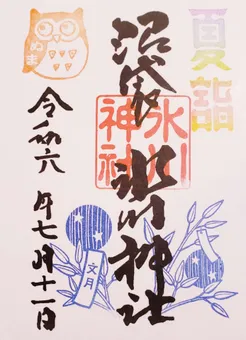 夏詣
沼袋氷川神社
氷川神社
令和六年七月十一日
ぬま
文月